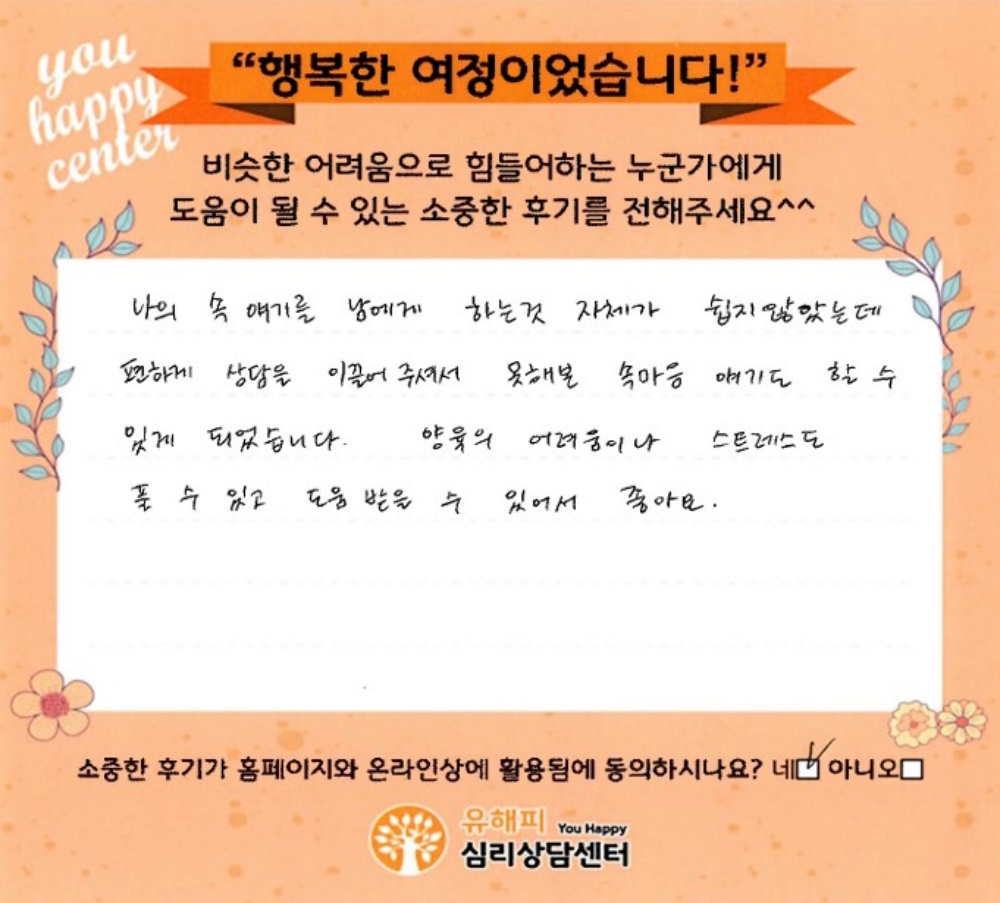 you
happy
center
“행복한 여정이었습니다!”
비슷한 어려움으로 힘들어하는 누군가에게
도움이 될 수 있는 소중한 후기를 전해주세요^^
나의 속 얘기를 남에게 하는것 자체가 쉽지않았는데
편하게 상담을 이끌어 주셔서 못해본 속마음 얘기도 할 수
있게 되었습니다. 양육의 어려움이나 스트레스도
풀 수 있고 도움 받을 수 있어서 좋아요.
소중한 후기가 홈페이지와 온라인상에 활용됨에 동의하시나요? 네☑ 아니오☐
유해피 You Happy
심리상담센터